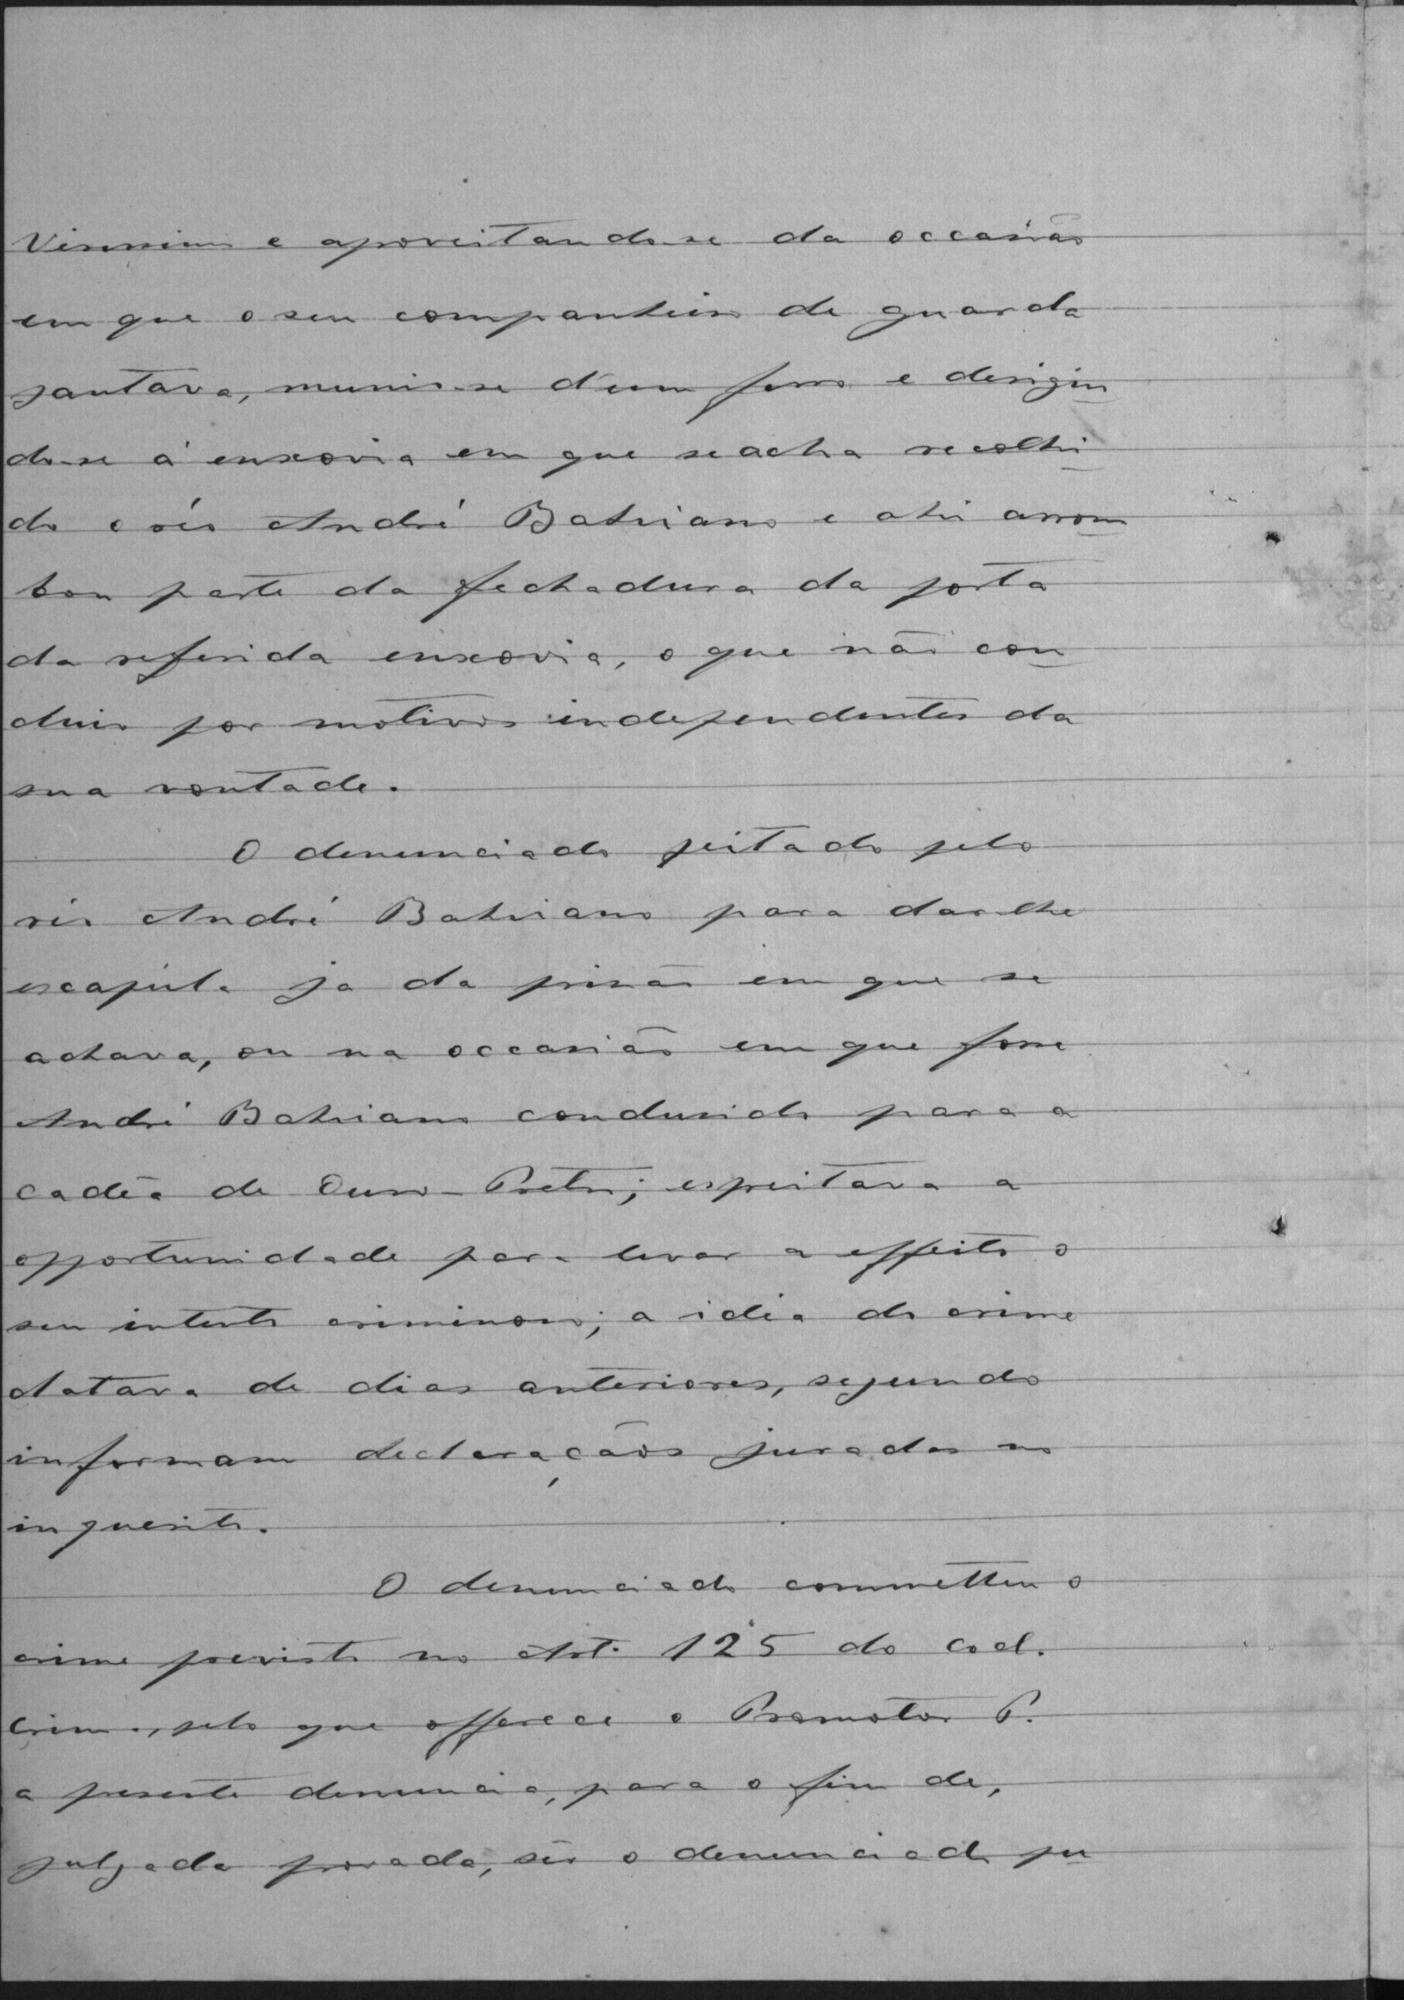 e aproveitando-se da occasião
em que o seu companheiro de guarda
jantava, munio-se d'um ferro e derigin
do-se á enxovia em que se acha recolhi
do o réo André Bahiano e ahi arrom
bou parte da fechadura da porta
da referida enxovia, o que não con
cluio por motivos independentes da
sua vontade.
O denunciado peitado pelo
réo André Bahiano para dar-lhe
escapula ja da prisão em que se
achava, ou na occasião em que fosse
André Bahiano condusido para a
cadêa de Ouro-Preto; espreitava a
opportunidade para levar a effeito o
seu intento criminoso; a idéa do crime
datava de dias anteriores, segundo
informam declaraçãos juradas no
inquerito.
O denunciado commetteu o
crime previsto no Art. 125 do Cod.
Crim., pelo que offerece o Promotor P.
a presente denuncia, para o fim de,
julgada provada, ser o denunciado pu